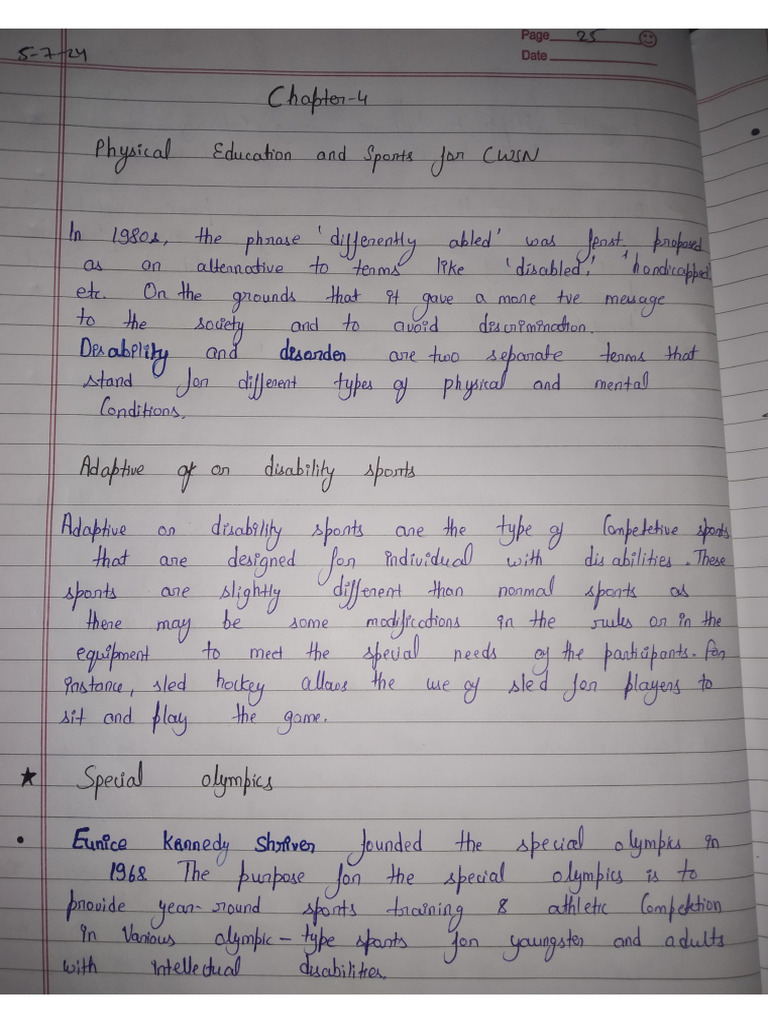 Page 25
5-7-24
Date
Chapter-4
Physical Education and Sports for CWSN
In 1980s, the phrase 'differently abled' was first proposed
as an alternative to terms like 'disabled,' 'handicapped'
etc. On the grounds that it gave a more +ve message
to the society and to avoid discrimination.
Disability and disorder are two separate terms that
stand for different types of physical and mental
Conditions.
Adaptive of or disability sports
Adaptive or disability sports are the type of Competetive sports
that are designed for individual with disabilities. These
sports are slightly different than normal sports as
there may be some modifications in the rules or in the
equipment to meet the special needs of the participants. For
instance, sled hockey allows the use of sled for players to
sit and play the game.
★ Special olympics
• Eunice Kennedy Shriver founded the special olympics in
1968. The purpose for the special olympics is to
provide year-round sports training & athletic Competition
in Various olympic-type sports for youngster and adults
with intellectual disabilities.